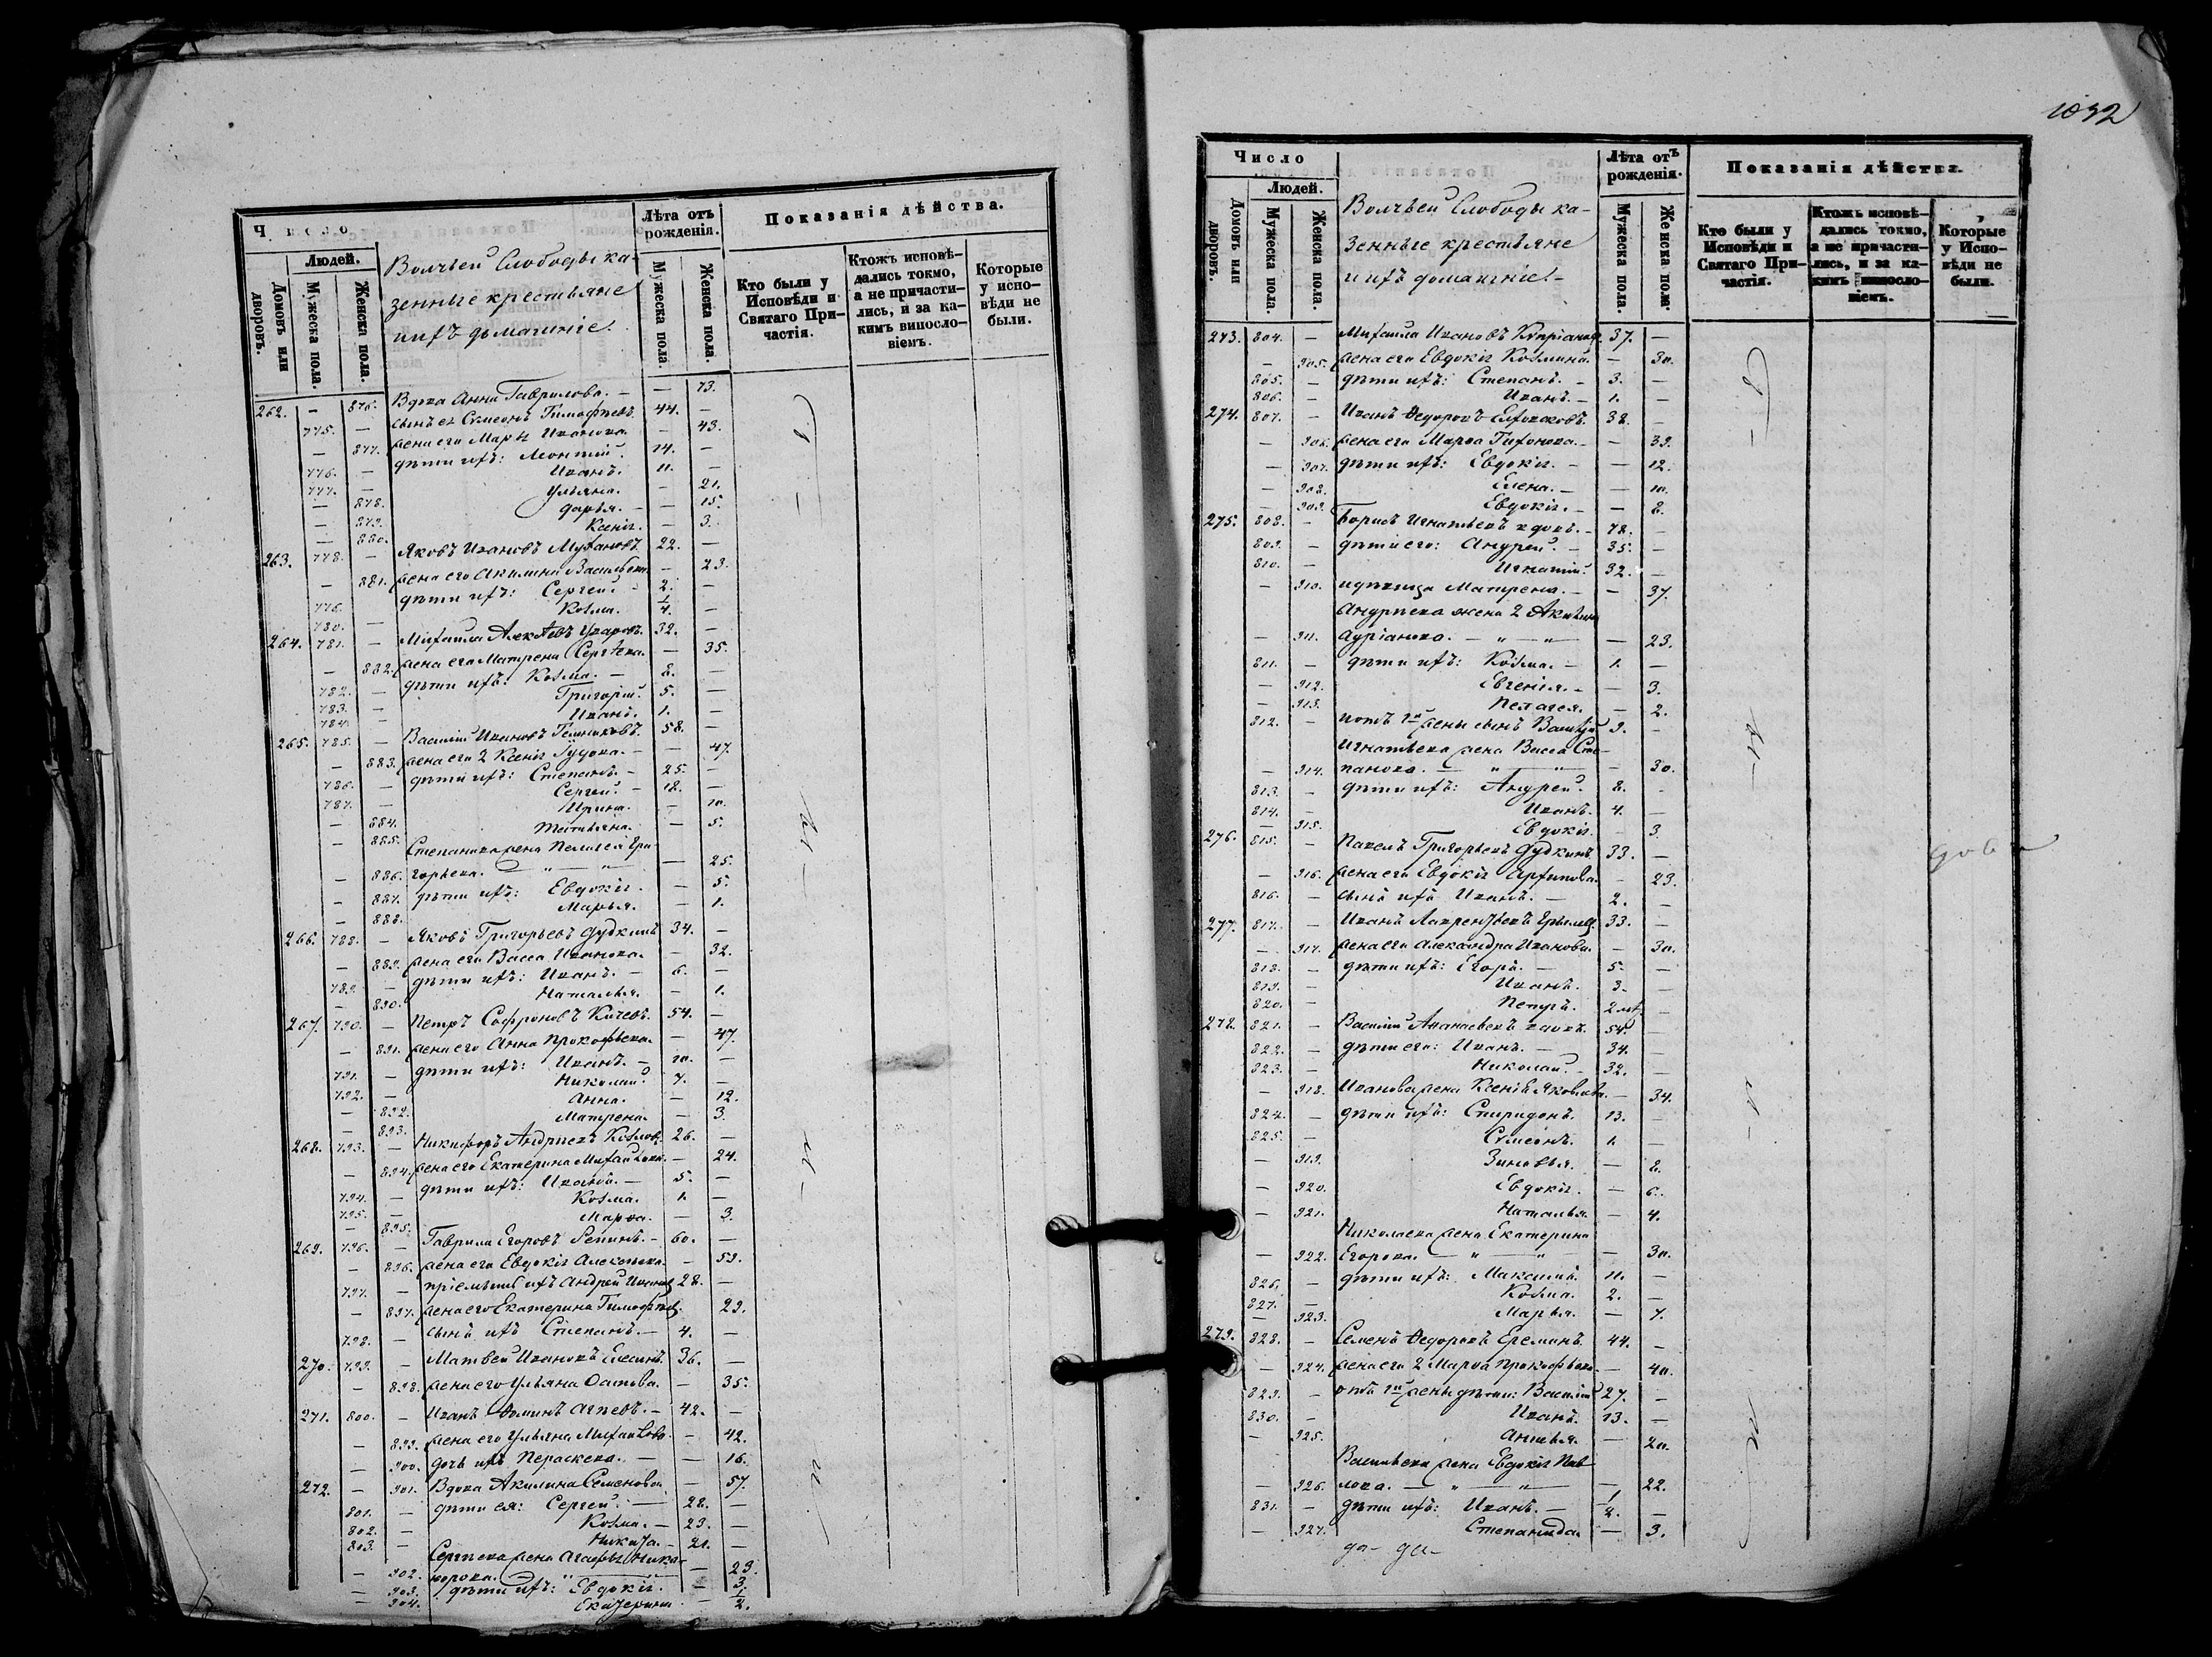 Число
Людей.
Домовъ или дворовъ.
Мужеска пола.
Женска пола.
Волчьей Слободы ка-
зенные крестьяне
и ихъ домашніе.
Лѣта отъ рожденія.
Мужеска пола.
Женска пола.
Показанія дѣйства.
Кто были у Исповѣди и Святаго При-частія.
Ктожъ исповѣ-дались токмо, а не причасти-лись, и за ка-кимъ виносло-віемъ.
Которые у испо-вѣди не были.
262. — 876. Вдова Анна Гаврилова. — — 73.
775. — сынъ ея Сѵмеонъ Тимофѣевъ. 44. —
— 877. жена его Марѳа Иванова. — 43.
776. — дѣти ихъ: Леонтій. 14. —
777. — Иванъ. 11. —
— 878. Ульяна. — 21.
— 879. Дарья. — — 15.
— 880. Ксенія. — 3.
263. 778. — Яковъ Ивановъ 22. —
— 881. жена его Акилина Васильева. — 23.
дѣти ихъ: Сергей. — 2. —
Козма. 1/4. —
780. —
264. 781. — Михаила 32. —
— 882. жена его Матрена Сергѣева. — 35.
782. — дѣти ихъ: Козма. — 8. —
783. — Григорій. 5. —
784. — Иванъ. 1. —
265. 785. — Василій Ивановъ 58. —
— 883. жена его 2 Ксенія — — 47.
786. — дѣти ихъ: Степанъ. — 25. —
787. — Сергей. — 12. —
— 884. Ирина. — 10.
— 885. Татьяна. — 5.
Степанова жена Пелагея Гри-
— 886. горьева. — " — " — — 25.
— 887. дѣти ихъ: Евдокія. — 5.
— 888. Марья. — 1.
266. 788. — Яковъ Григорьевъ Дудкинъ 34. —
— 889. жена его Васса Иванова. — 32.
789. — дѣти ихъ: Иванъ. — 6. —
— 890. Наталья. — 1.
267. 790. — Петръ Софроновъ 54. —
— 891. жена его Анна Прокофьева. — 47.
791. — дѣти ихъ: Иванъ. — 10. —
792. — Николай. 7. —
— 892. Анна. — 12.
— 893. Матрена. — 3.
268. 793. — Никифоръ Андрѣевъ 26. —
— 894. жена его Екатерина Михайлова. — 24.
794. — дѣти ихъ: Иванъ. — 5. —
795. — Козма. 1. —
— 895. Марѳа. — 3.
269. 796. — Гаврила Егоровъ Репинъ. — 60. —
— 896. жена его Евдокія Алексѣева. — 59.
797. — пріемышъ ихъ Андрей 28. —
— 897. жена его Екатерина — 29.
798. — сынъ ихъ Степанъ. — 4. —
270. 799. — Матвей Ивановъ 36. —
— 898. жена его Ульяна — 35.
271. 800. — Иванъ Ѳоминъ 42. —
— 899. жена его Ульяна Михайлова. — 42.
— 900. дочь ихъ Параскева. — — 16.
272. — 901. Вдова Акилина Семенова. 57.
801. — дѣти ея: Сергей. — 28. —
802. — Козма. — 23. —
803. — Никита. — 21. —
Сергѣева жена Агафья Ника-
— 902. норова. — " — — 23.
— 903. дѣти ихъ: Евдокія. — 3.
— 904. Екатерина — 1/2.
1032
Число
Людей.
Домовъ или дворовъ.
Мужеска пола.
Женска пола.
Волчьей Слободы ка-
зенные крестьяне
и ихъ домашніе. —
Лѣта отъ рожденія.
Мужеска пола.
Женска пола.
Показанія дѣйства.
Кто были у Исповѣди и Святаго При-частія.
Ктожъ исповѣ-дались токмо, а не причасти-лись, и за ка-кимъ винослo-віемъ.
Которые у Испо-вѣди не были.
273. 804. — Михаила Ивановъ 37. —
— 905. жена его Евдокія Козмина. — 30.
805. — дѣти ихъ: Степанъ. — 3. —
806. — Иванъ. — 1. —
274. 807. — Иванъ Ѳедоровъ 38. —
— 906. жена его Марѳа Тихонова. — — 39.
— 907. дѣти ихъ: Евдокія. — — 12.
— 908. Елена. — — 10.
— 909. Евдокія. — — 8.
275. 808. — Борисъ Игнатьевъ вдовъ. — 78. —
809. — дѣти его: Андрей. — 35. —
810. — Игнатій. 32. —
— 910. и дѣвица Матрена. — — 37.
Андрѣева жена 2 Акилина
— 911. Адріанова. — " — " — — 23.
811. — дѣти ихъ: Козма. — 1. —
— 912. Евгенія. — — 3.
— 913. Пелагея. — 2.
812. — и отъ 1й жены сынъ Василій 9. —
Игнатьева жена Васса Сте-
— 914. панова. — " — " — — 30.
813. — дѣти ихъ: Андрей. 8. —
814. — Иванъ. 4. —
— 915. Евдокія. — 3.
276. 815. — Павелъ Григорьевъ Дудкинъ. 33. —
— 916. жена его Евдокія Архипова. — 23.
816. — сынъ ихъ Иванъ. — 2. —
277. 817. — Иванъ Лаврентьевъ 33. —
— 917. жена его Александра Иванова. — 30.
818. — дѣти ихъ: Егоръ. — 5. —
819. — Иванъ. 3. —
820. — Петръ. —
278. 821. — Василій Ананьевъ вдовъ. 54. —
822. — дѣти его: Иванъ. — 34. —
823. — Николай. — 32. —
— 918. Иванова жена Ксенія Яковлева. — 34.
824. — дѣти ихъ: Спиридонъ. 13. —
825. — Сѵмеонъ. 1. —
— 919. Зиновья. — 8.
— 920. Евдокія. — 6.
— 921. Наталья. — 4.
Николаева жена Екатерина
— 922. Егорова. — " — " — 30.
826. — дѣти ихъ: Максимъ. 11. —
827. — Козма. 2. —
— 923. Марья. — 7.
279. 828. — Семенъ Ѳедоровъ Ереминъ. 44. —
— 924. жена его 2 Марѳа Прокофьева. — 40.
829. — отъ 1й жены дѣти: Василій 27. —
830. — Иванъ. 13. —
— 925. Анисья. — 20.
Васильева жена Евдокія Пав-
— 926. лова. — " — " — — 22.
831. — дѣти ихъ: Иванъ. — —
— 927. Степанида. — 3.